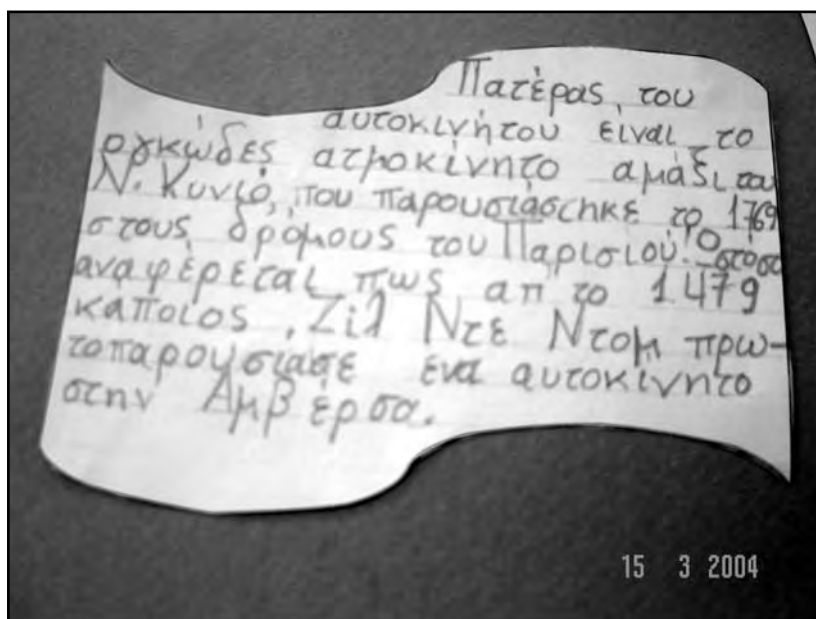 Πατέρας του
αυτοκινήτου είναι το
ογκώδες ατμοκίνητο αμάξι του
Ν. Κυνιό, που παρουσιάσθηκε το 1769
στους δρόμους του Παρισιού. Ωστόσο
αναφέρεται πως απ το 1479
κάποιος, Ζίλ Ντε Ντομ πρω-
τοπαρουσίασε ένα αυτοκίνητο
στην Αμβέρσα.
15 3 2004